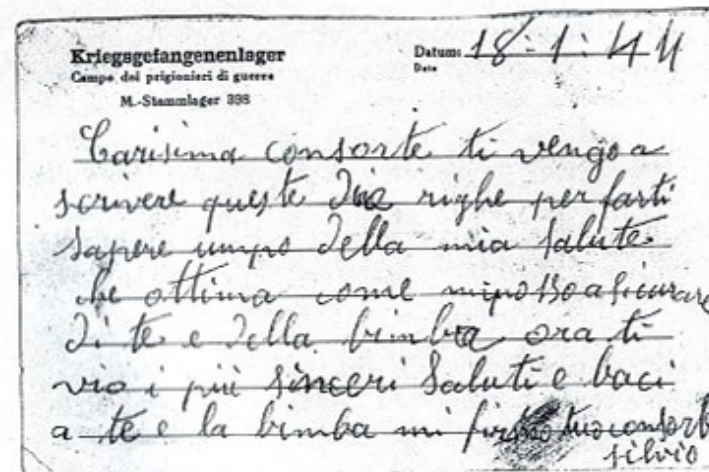 Kriegsgefangenenlager
Campo dei prigionieri di guerra
M.-Stammlager 398
Datum: 18-1-44
Data
Carisima consorte ti vengo a
scrivere queste due righe per farti
sapere umpo della mia salute
che ottima come mi posso asicurare
di te e della bimba ora ti
vio i più sinceri saluti e baci
a te e la bimba mi firmo tuo consorte
silvio